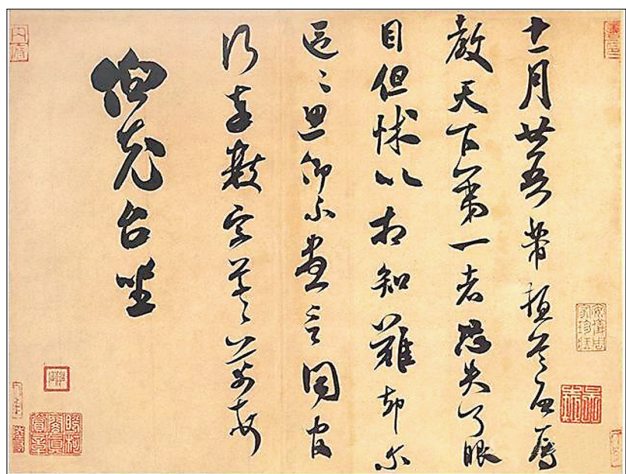 十一月廿五日芾頓首啟辱
教天下第一者恐失了眼
目但怵以相知難却尔
區區思仰不盡言同官
行奉數字草草芾頓首
伯充台坐